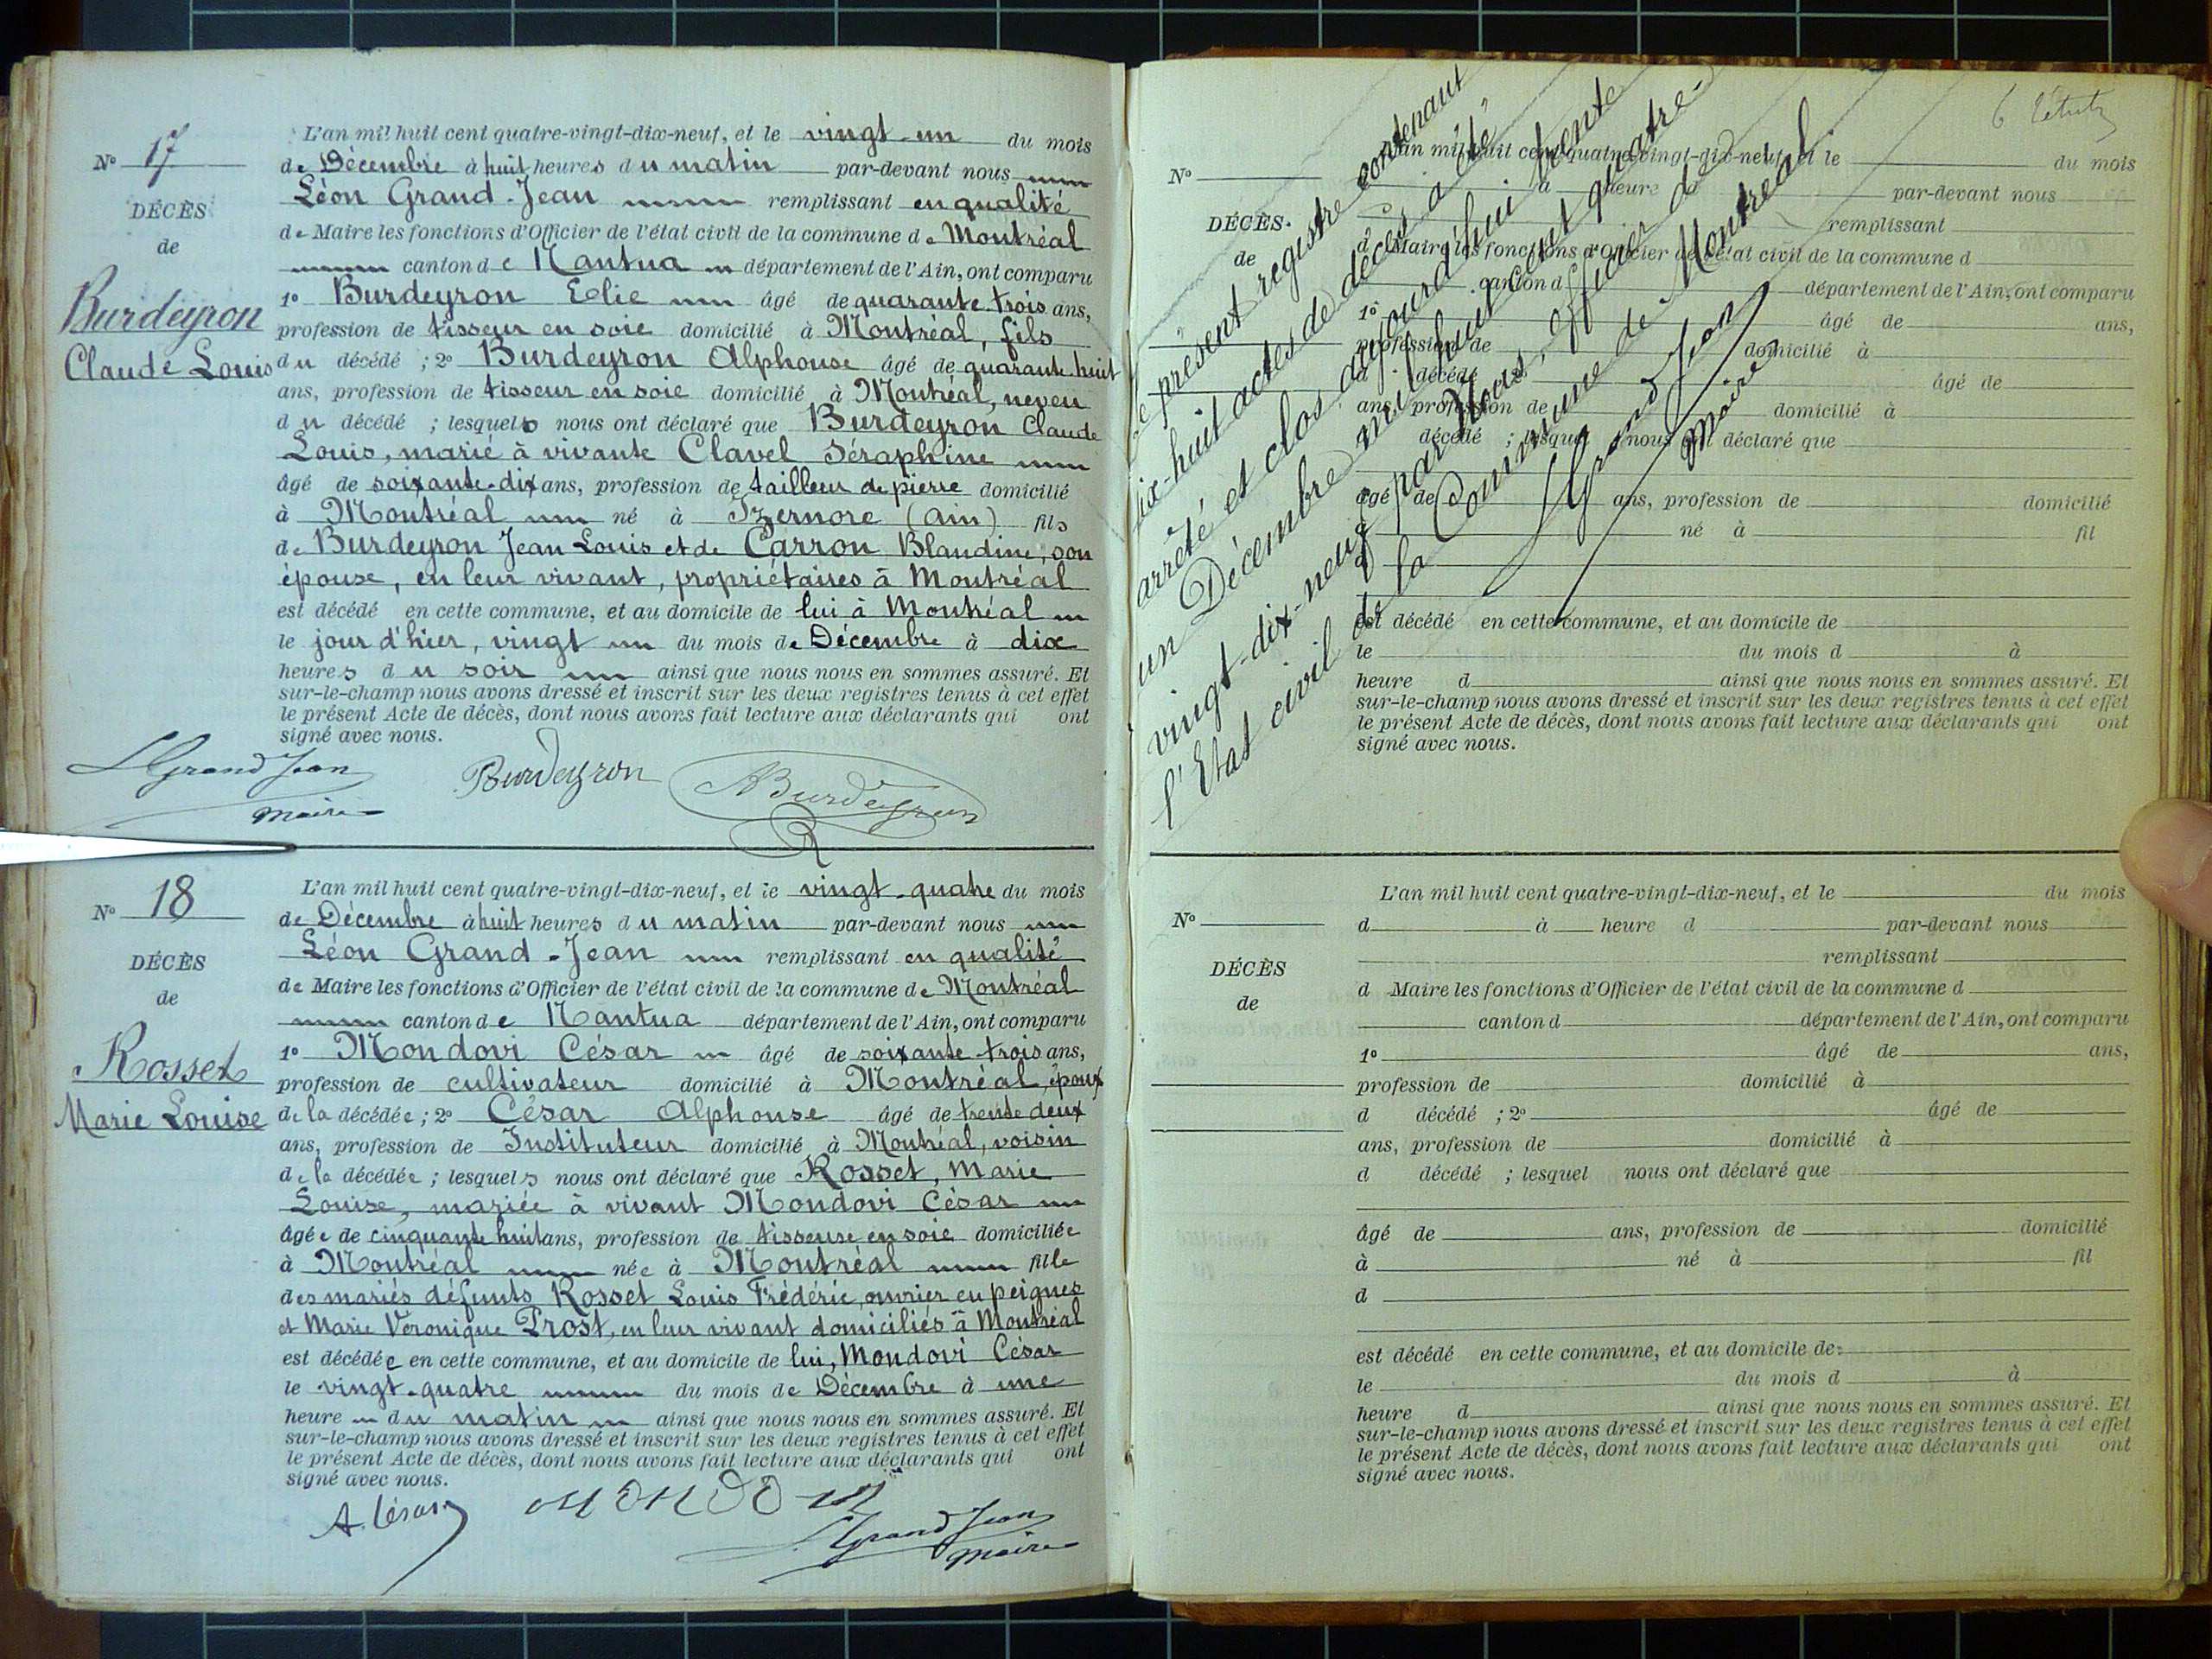 N° 17
DÉCÈS
de
Burdeyron
Claude Louis
L'an mil huit cent quatre-vingt-dix-neuf, et le vingt-un du mois
de Décembre à huit heures du matin par-devant nous
Léon Grand-Jean remplissant en qualité
de Maire les fonctions d'Officier de l'état civil de la commune de Montréal
canton de Nantua département de l'Ain, ont comparu
1° Burdeyron Elie âgé de quarante-trois ans,
profession de tisseur en soie domicilié à Montréal, fils
du décédé ; 2° Burdeyron Alphonse âgé de quarante huit
ans, profession de tisseur en soie domicilié à Montréal, neveu
du décédé ; lesquels nous ont déclaré que Burdeyron Claude
Louis, marié à vivante Clavel Séraphine
âgé de soixante-dix ans, profession de tailleur de pierre domicilié
à Montréal né à Izernore (Ain) fils
de Burdeyron Jean Louis et de Carron Blandine, son
épouse, en leur vivant, propriétaires à Montréal
est décédé en cette commune, et au domicile de lui à Montréal
le jour d'hier, vingt du mois de Décembre à dix
heures du soir ainsi que nous nous en sommes assuré. Et
sur-le-champ nous avons dressé et inscrit sur les deux registres tenus à cet effet
le présent Acte de décès, dont nous avons fait lecture aux déclarants qui ont
signé avec nous.
LGrand Jean
maire
Burdeyron
ABurdeyron
N° 18
DÉCÈS
de
Rosset
Marie Louise
L'an mil huit cent quatre-vingt-dix-neuf, et le vingt-quatre du mois
de Décembre à huit heures du matin par-devant nous
Léon Grand-Jean remplissant en qualité
de Maire les fonctions d'Officier de l'état civil de la commune de Montréal
canton de Nantua département de l'Ain, ont comparu
1° Mondovi César âgé de soixante-trois ans,
profession de cultivateur domicilié à Montréal, époux
de la décédée ; 2° César Alphonse âgé de trente deux
ans, profession de Instituteur domicilié à Montréal, voisin
de la décédée ; lesquels nous ont déclaré que Rosset, Marie
Louise, mariée à vivant Mondovi César
âgée de cinquante huit ans, profession de tisseuse en soie domiciliée
à Montréal née à Montréal fille
des mariés défunts Rosset Louis Frédéric, ouvrier en peignes
et Marie Véronique Prost, en leur vivant domiciliés à Montréal
est décédée en cette commune, et au domicile de lui, Mondovi César
le vingt-quatre du mois de Décembre à une
heure du matin ainsi que nous nous en sommes assuré. Et
sur-le-champ nous avons dressé et inscrit sur les deux registres tenus à cet effet
le présent Acte de décès, dont nous avons fait lecture aux déclarants qui ont
signé avec nous.
A. César
LGrand Jean
maire
Le présent registre contenant
dix-huit actes de décès a été
arrêté et clos aujourd'hui trente
un Décembre mil huit cent quatre-
vingt-dix-neuf par Nous, officier de
l'Etat civil de la Commune de Montréal
LGrand Jean
Maire
N°
DÉCÈS.
de
L'an mil huit cent quatre-vingt-dix-neuf, et le du mois
d à heure d par-devant nous
remplissant
d Maire les fonctions d'Officier de l'état civil de la commune d
canton d département de l'Ain, ont comparu
1° âgé de ans,
profession de domicilié à
d décédé ; 2° âgé de
ans, profession de domicilié à
d décédé ; lesquel nous ont déclaré que
âgé de ans, profession de domicilié
à né à fil
d
est décédé en cette commune, et au domicile de
le du mois d à
heure d ainsi que nous nous en sommes assuré. Et
sur-le-champ nous avons dressé et inscrit sur les deux registres tenus à cet effet
le présent Acte de décès, dont nous avons fait lecture aux déclarants qui ont
signé avec nous.
N°
DÉCÈS
de
L'an mil huit cent quatre-vingt-dix-neuf, et le du mois
d à heure d par-devant nous
remplissant
d Maire les fonctions d'Officier de l'état civil de la commune d
canton d département de l'Ain, ont comparu
1° âgé de ans,
profession de domicilié à
d décédé ; 2° âgé de
ans, profession de domicilié à
d décédé ; lesquel nous ont déclaré que
âgé de ans, profession de domicilié
à né à fil
d
est décédé en cette commune, et au domicile de
le du mois d à
heure d ainsi que nous nous en sommes assuré. Et
sur-le-champ nous avons dressé et inscrit sur les deux registres tenus à cet effet
le présent Acte de décès, dont nous avons fait lecture aux déclarants qui ont
signé avec nous.